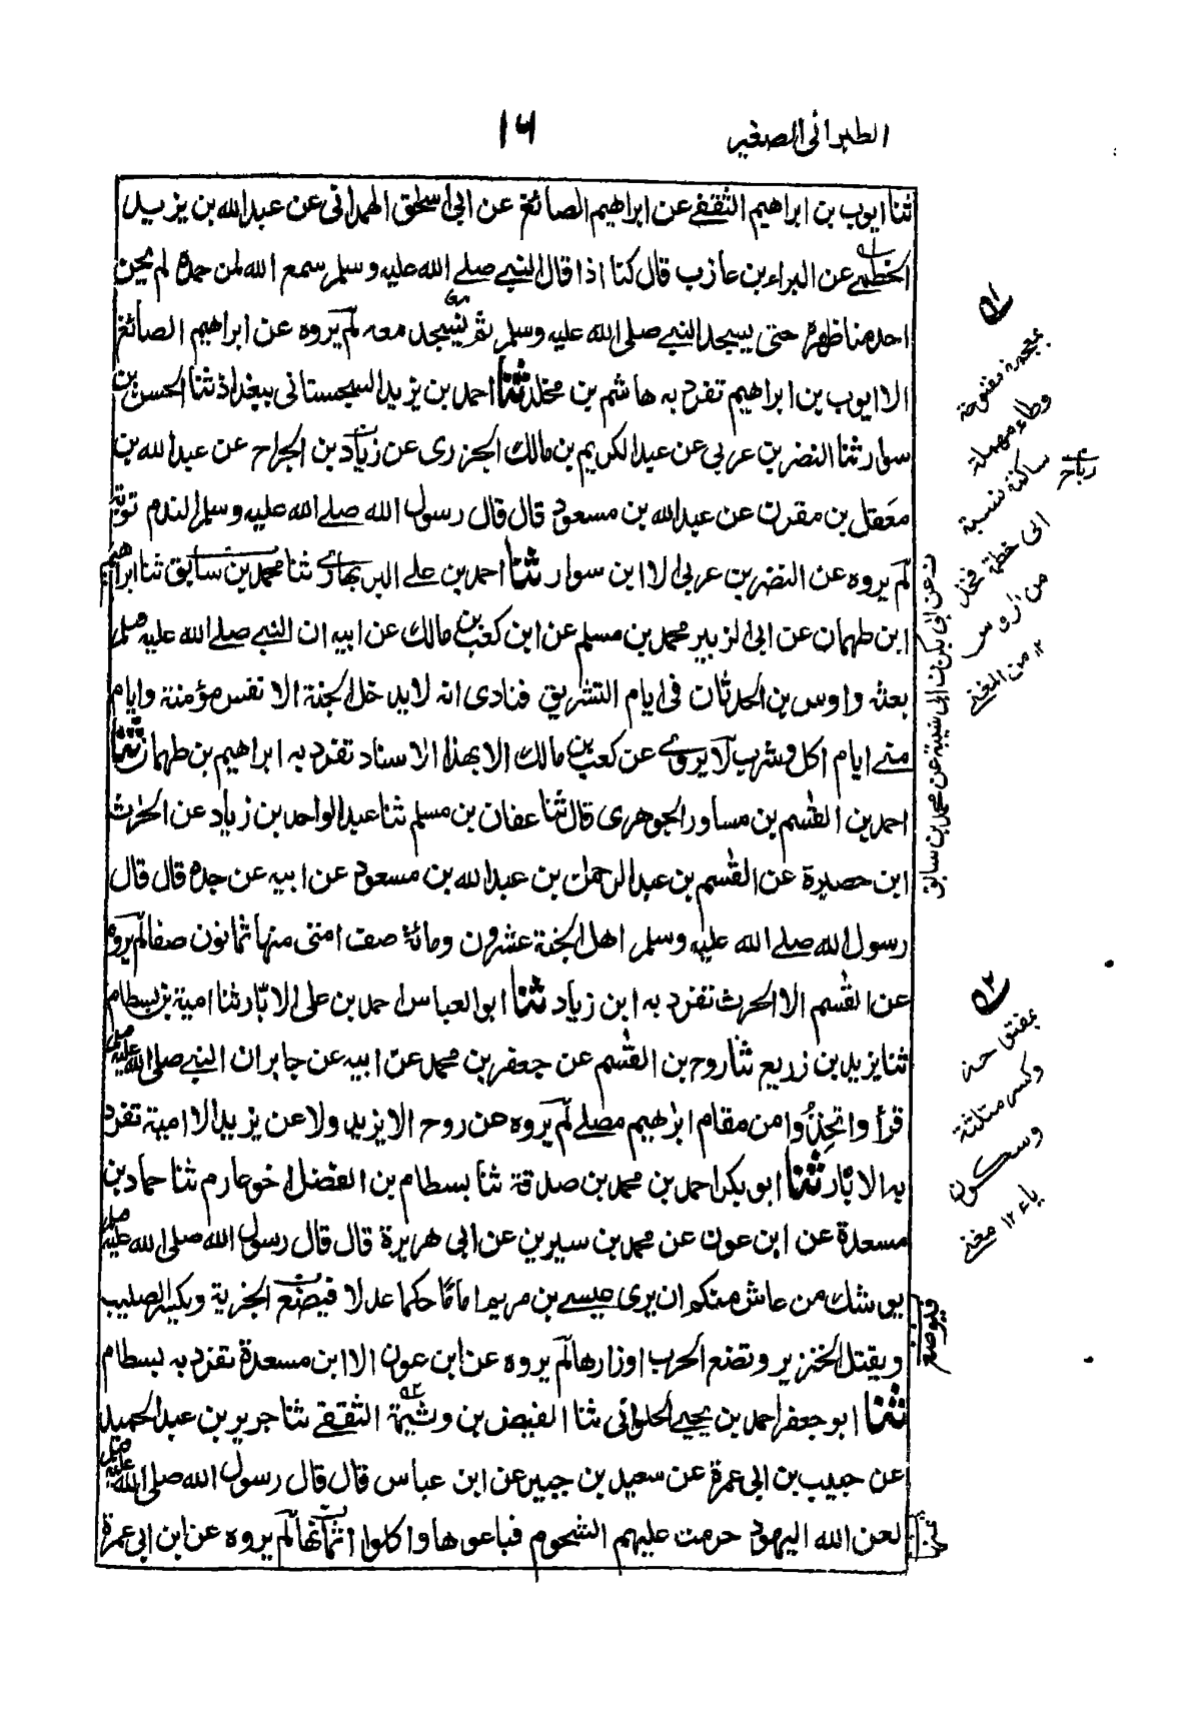 الطبرانی الصغیر
١٦
ثنا ایوب بن ابراهیم الثقفے عن ابراهیم الصائغ عن ابی اسحٰق الهمدانی عن عبدالله بن یزید
الخطمے عن البراء بن عازب قال کنا اذا قال النبی صلے الله علیه وسلم سمع الله لمن حمده لم یحن
احد منا ظهره حتی یسجد النبی صلی الله علیه وسلم ثم نسجد معه لم یروه عن ابراهیم الصائغ
الا ایوب بن ابراهیم تفرد به هاشم بن مخلد ثنا احمد بن یزید السجستانی ببغداذ ثنا الحسن بن
سوار ثنا النضر بن عربی عن عبدالکریم بن مالك الجزری عن زیاد بن الجراح عن عبدالله بن
معقل بن مقرن عن عبدالله بن مسعود قال قال رسول الله صلے الله علیه وسلم الندم توبة
لم یروه عن النضر بن عربی الا ابن سوار ثنا احمد بن علے البربهاری ثنا محمد بن سابق ثنا ابراهیم
ابن طهمان عن ابی الزبیر محمد بن مسلم عن ابن کعب بن مالك عن ابیه ان النبی صلے الله علیه وسلم
بعثه واوس بن الحدثان فی ایام التشریق فنادی انه لا یدخل الجنة الا نفس مؤمنة وایام
منے ایام اکل وشرب لا یروے عن کعب بن مالك الا بهذا الاسناد تفرد به ابراهیم بن طهمان ثنا
احمد بن القٰسم بن مساور الجوهری قال ثنا عفان بن مسلم ثنا عبدالواحد بن زیاد عن الحٰرث
ابن حصیرة عن القٰسم بن عبدالرحمٰن بن عبدالله بن مسعود عن ابیه عن جده قال قال
رسول الله صلے الله علیه وسلم اهل الجنة عشرون ومائة صف امتی منها ثمانون صفا لم یروه
عن القٰسم الا الحرث تفرد به ابن زیاد ثنا ابوالعباس احمد بن علی الابّار ثنا امیة بن بسطام
ثنا یزید بن زریع ثنا روح بن القٰسم عن جعفر بن محمد عن ابیه عن جابر ان النبی صلی الله علیه وسلم
قرأ واتخِذُوا من مقام ابرٰهیم مصلے لم یروه عن روح الا یزید ولا عن یزید الا امیة تفرد
به الابّار ثنا ابو بکر احمد بن محمد بن صدقة ثنا بسطام بن الفضل اخو عارم ثنا حماد بن
مسعدة عن ابن عون عن محمد بن سیرین عن ابی هریرة قال قال رسول الله صلی الله علیه وسلم
یوشك من عاش منکم ان یری عیسے بن مریم امامًا حکما عدلا فیضع الجزیة ویکسر الصلیب
ویقتل الخنزیر وتضع الحرب اوزارها لم یروه عن ابن عون الا ابن مسعدة تفرد به بسطام
ثنا ابو جعفر احمد بن یحیے الحلوانی ثنا الفیض بن وثیمة الثقفے ثنا جریر بن عبدالحمید
عن حبیب بن ابی عمرة عن سعید بن جبیر عن ابن عباس قال قال رسول الله صلی الله علیه وسلم
لعن الله الیهود حرمت علیهم الشحوم فباعوها واکلوا اثمانها لم یروه عن ابن ابی عمرة
بمعجمة مفتوحة
وطاء مهملة
ساکنة نسبة
الی خطمة فخذ
من اوس
١٢ من المغنے
رباح
ن عن ابی بکر بن ابی شیبة عن محمد بن سابق
وکسر مثلثة
وسکون
یاء ١٢ مغنے